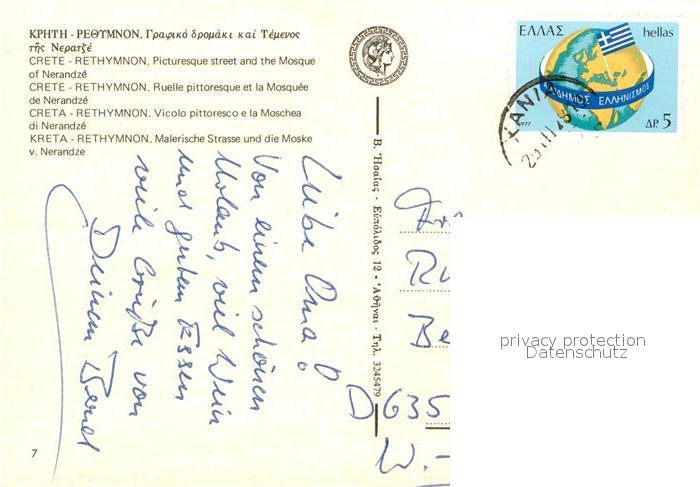 ΚΡΗΤΗ - ΡΕΘΥΜΝΟΝ. Γραφικό δρομάκι καί Τέμενος
τῆς Νερατζέ
CRETE - RETHYMNON. Picturesque street and the Mosque
of Nerandzé
CRETE - RETHYMNON. Ruelle pittoresque et la Mosquée
de Nerandzé
CRETA - RETHYMNON. Vicolo pittoresco e la Moschea
di Nerandzé
KRETA - RETHYMNON. Malerische Strasse und die Moske
v. Nerandze
Liebe Oma!
Von einem schönen
Urlaub, viel Wein
und gutem Essen
viele Grüße von
Deinem Bernd
7
Β. Ἡσαΐας - Εὐπόλιδος 12 - Ἀθῆναι - Τηλ. 3245479
ΕΛΛΑΣ hellas
ΑΠΟΔΗΜΟΣ ΕΛΛΗΝΙΣΜΟΣ
1977 ΔΡ. 5
ΧΑΝΙΑ
Ru
Be
D 635
W.-
privacy protection
Datenschutz